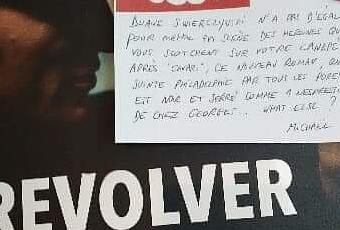 DUANE SWIERCZYNSKI N'A PAS D'ÉGAL
POUR METTRE EN SCÈNE DES HEROINES QUI
VOUS SCOTCHENT SUR VOTRE CANAPÉ
APRÈS "CANARI", CE NOUVEAU ROMAN, QUI
SUINTE PHILADELPHIE PAR TOUS LES PORES
EST NOIR ET SERRÉ COMME 1 NESPRESSO
DE CHEZ GEORGES... WHAT ELSE ?
MICHAEL
REVOLVER